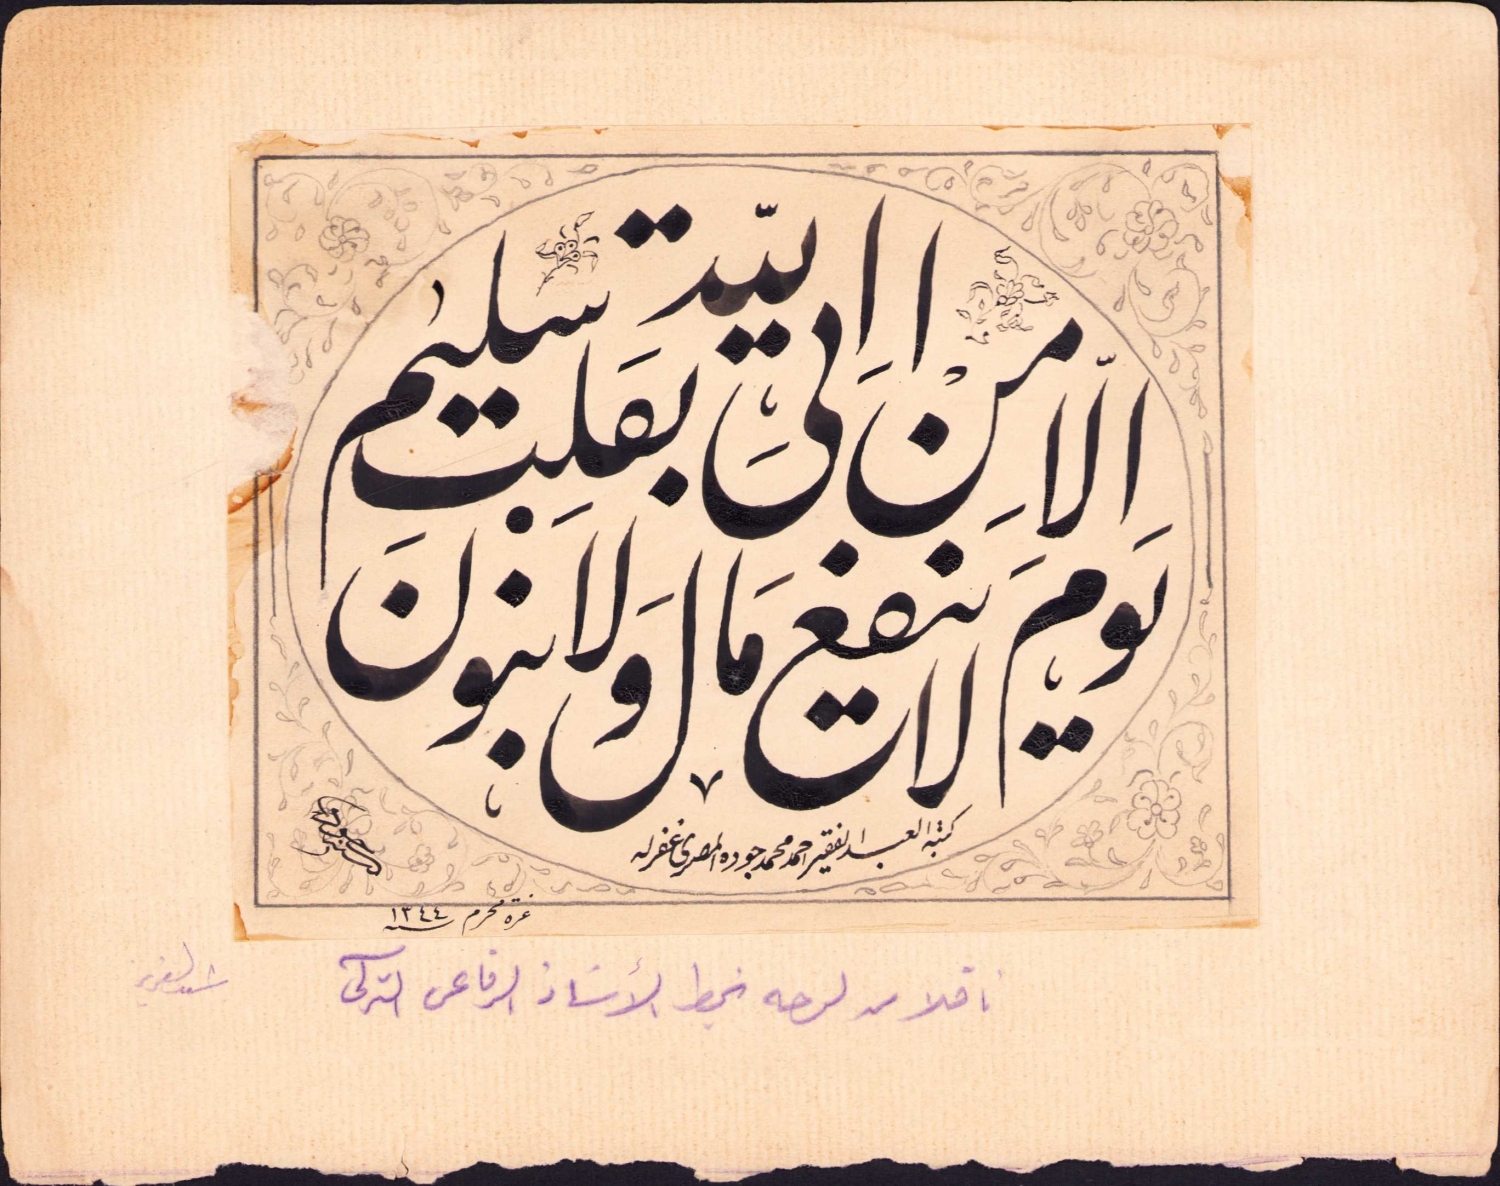 يَوم لا ينفع مَال وَلا بنونَ
الّا مَنْ اتىِ اللّه بقَلبٍ سليم
كتبه العبد الفقير احمد محمد جوده المصرى غفر له
غرة محرم سنة ١٣٤٤
ناقلا من لوحه بخط الأستاذ الرفاعى التركى